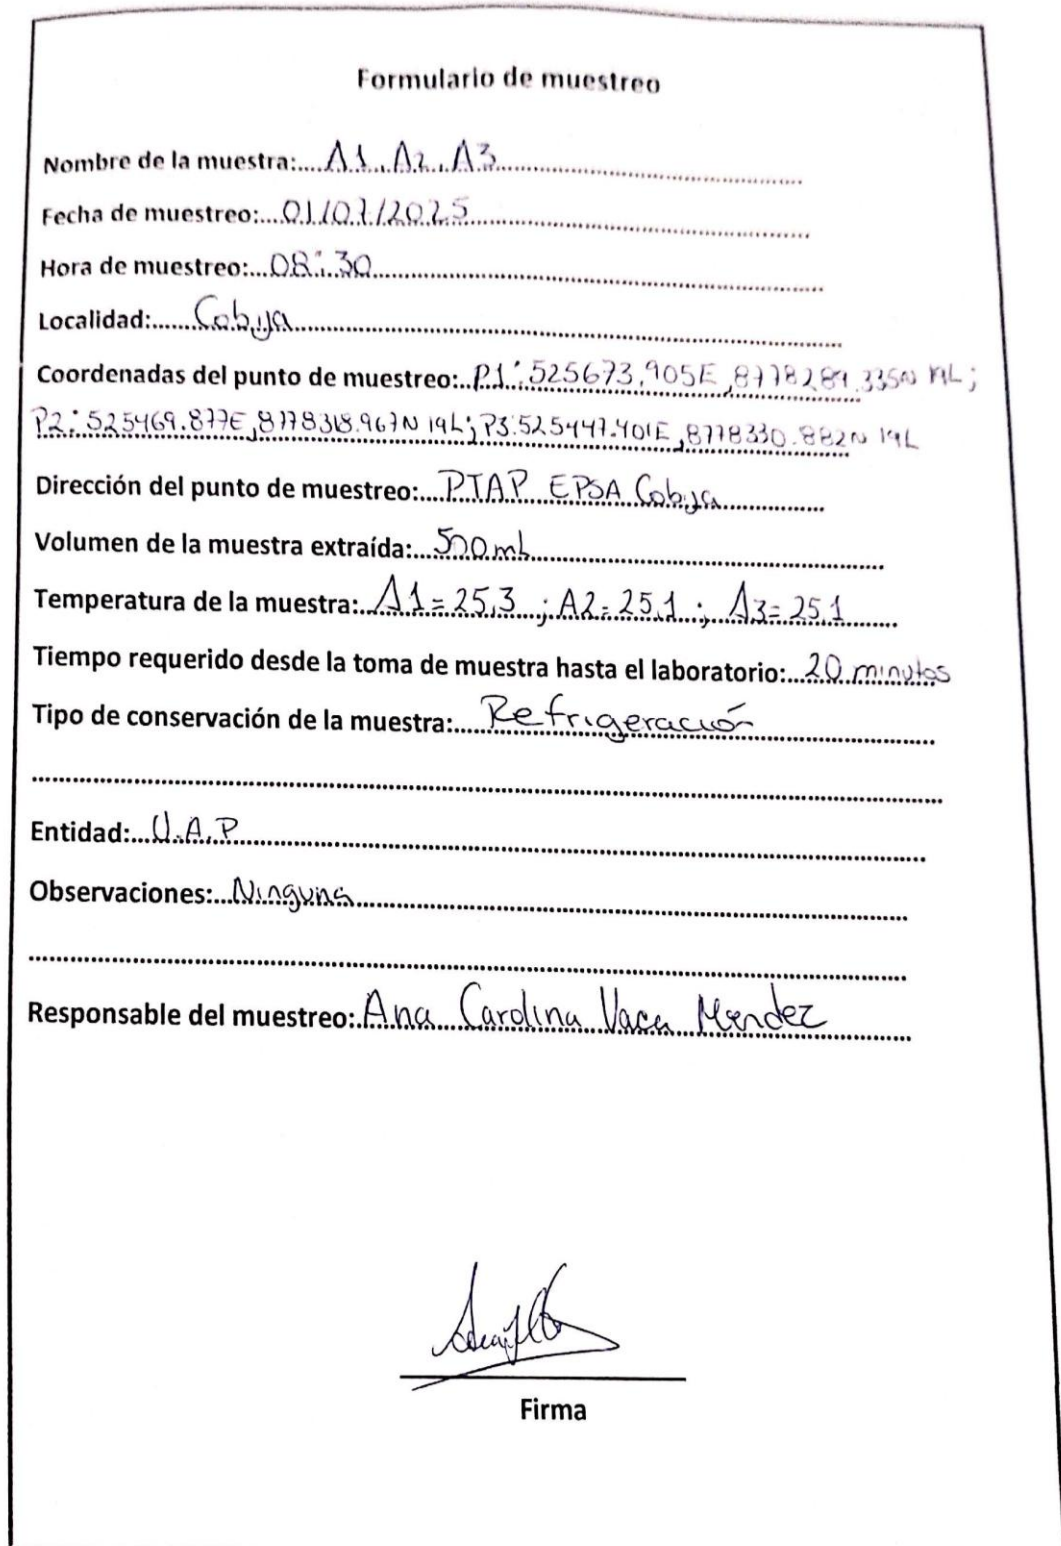 Formulario de muestreo
Nombre de la muestra:....A1..A2..A3
Fecha de muestreo:...01/07/2025
Hora de muestreo:...08:30
Localidad:......Cobija
Coordenadas del punto de muestreo:..P1:525673.905E,8778289.335N 19L;
P2:525469.877E,8778318.967N 19L;P3:525447.401E,8778330.882N 19L
Dirección del punto de muestreo:...PTAP EPSA Cobija
Volumen de la muestra extraída:...500 mL
Temperatura de la muestra:..A1=25,3 ; A2=25,1 ; A3=25,1
Tiempo requerido desde la toma de muestra hasta el laboratorio:...20 minutos
Tipo de conservación de la muestra:....Refrigeración
Entidad:...U.A.P
Observaciones:...Ninguna
Responsable del muestreo:.Ana Carolina Vaca Mendez
Firma